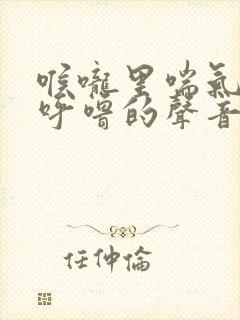 喉嚨里喘氣
呼嚕的聲音
任仲倫